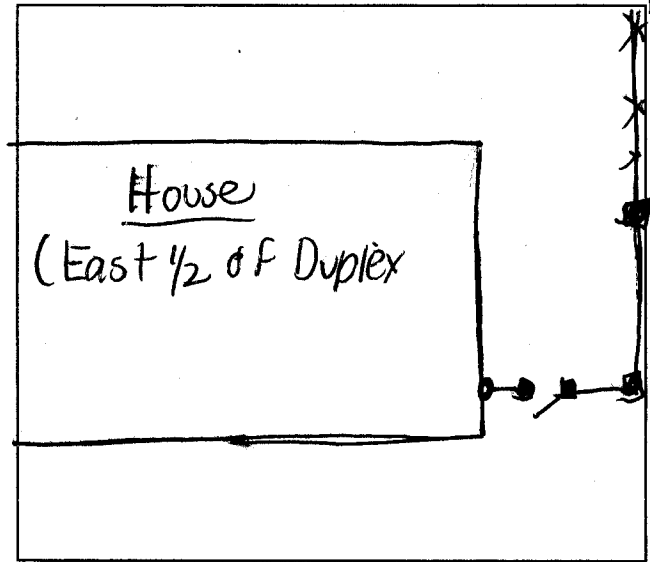 House
(East 1/2 of Duplex